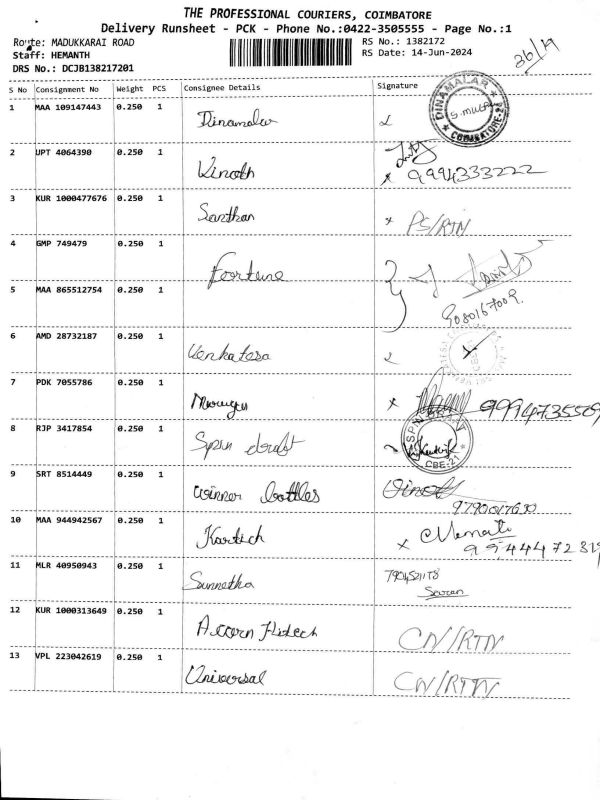 THE PROFESSIONAL COURIERS, COIMBATORE
Delivery Runsheet - PCK - Phone No.:0422-3505555 - Page No.:1
Route: MADUKKARAI ROAD
RS No.: 1382172
Staff: HEMANTH
RS Date: 14-Jun-2024
DRS No.: DCJB138217201
36/19
S No Consignment No Weight PCS Consignee Details Signature
1 MAA 109147443 0.250 1 Dinamalar
DINAMALAR
COIMBATORE-21
2 UPT 4064390 0.250 1 Vinoth x 9994333222
3 KUR 1000477676 0.250 1 Santhan x PS/RTN
4 GMP 749479 0.250 1 Fortune
5 MAA 865512754 0.250 1 9080167009.
6 AMD 28732187 0.250 1 Venkatesa
7 PDK 7055786 0.250 1 Murugan x 9994735509
8 RJP 3417854 0.250 1 Spin draft
CBE-21
9 SRT 8514449 0.250 1 Winner bottles Vinoth
9790017630
10 MAA 944942567 0.250 1 Kartich x
11 MLR 40950943 0.250 1 Sunnetha
Saran
12 KUR 1000313649 0.250 1 Accorn CN/RTN
13 VPL 223042619 0.250 1 Universal CN/RTN